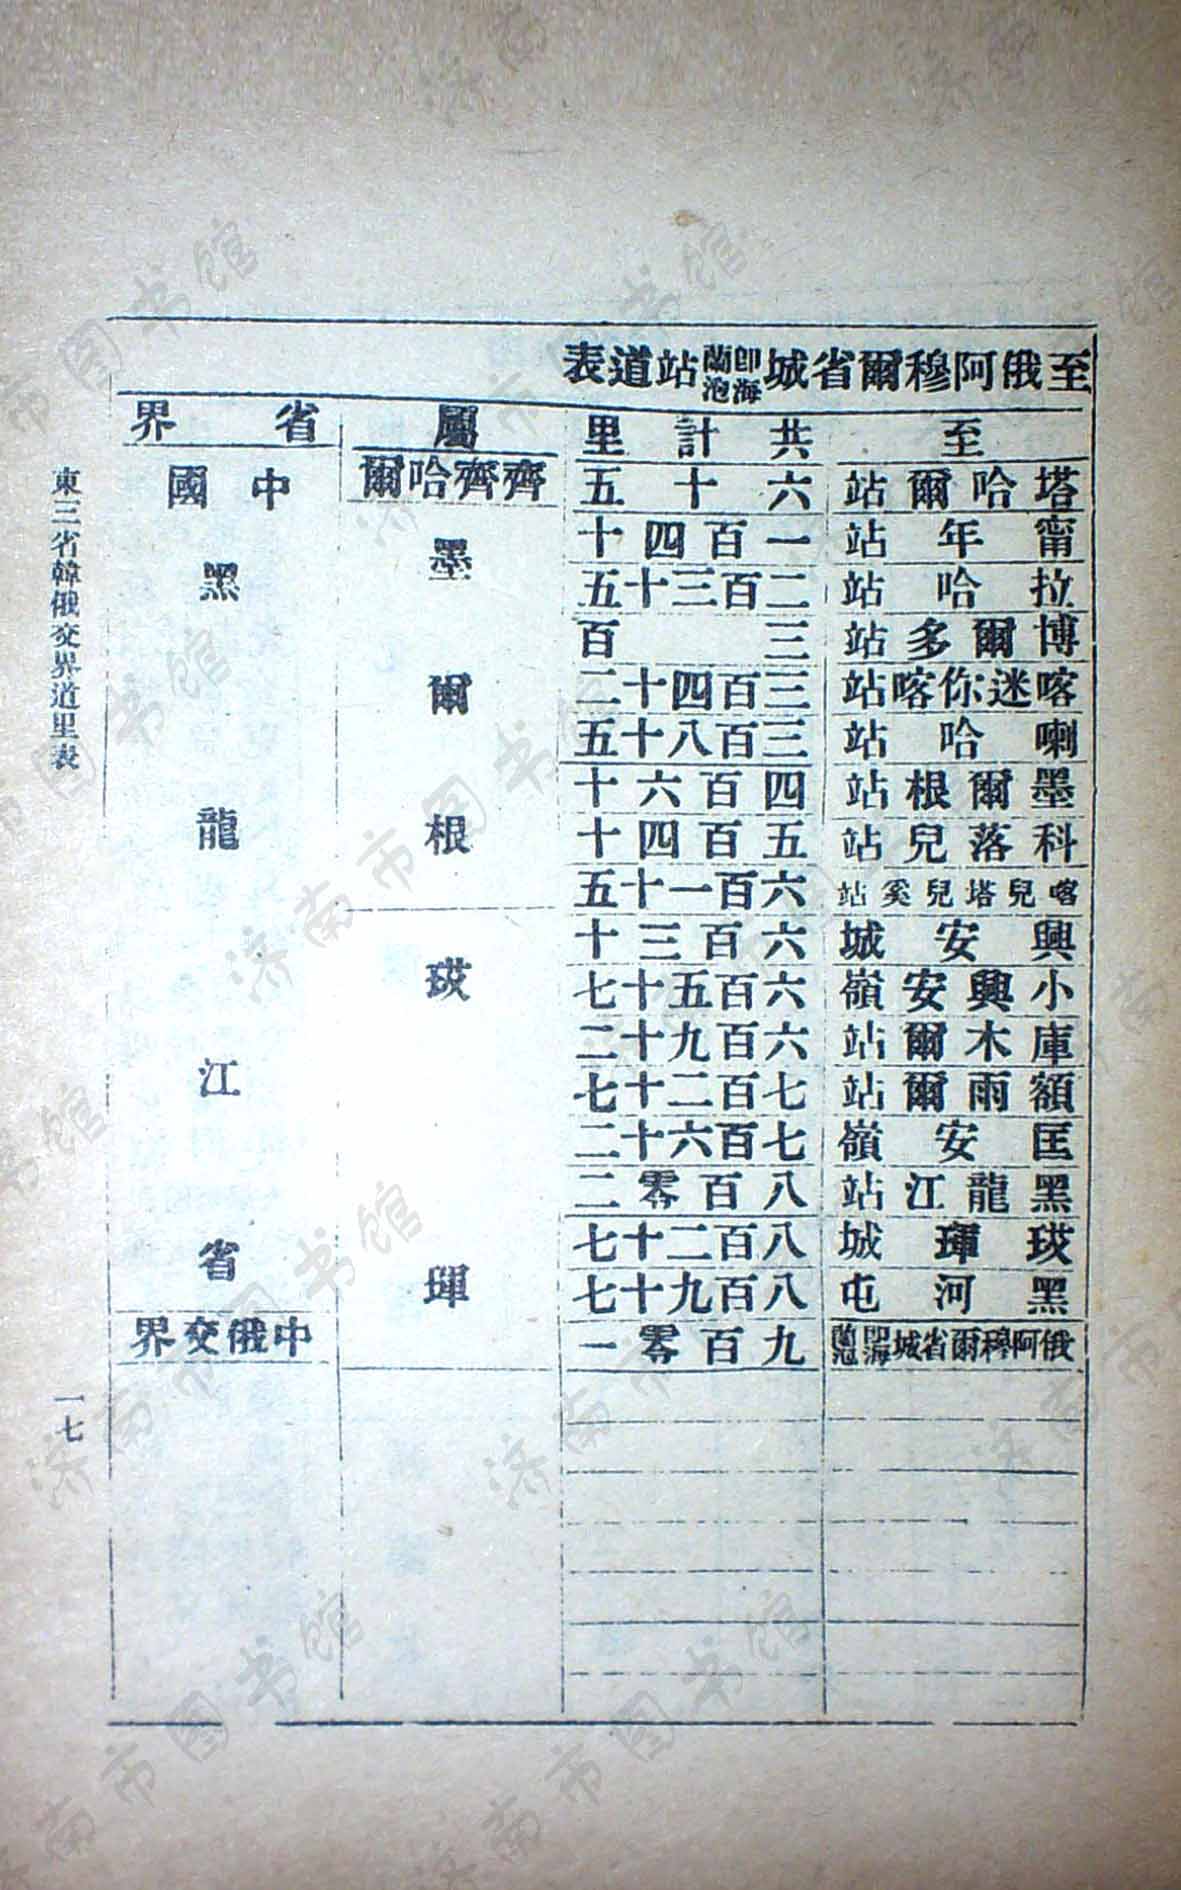 至俄阿穆爾省城即海蘭池站道表
至 共計里 屬 省界
塔哈爾站 六十五 齊齊哈爾 中國黑龍江省
甯年站 一百四十 墨爾根
拉哈站 二百三十五
博爾多站 三百
喀迷你喀站 三百四十二
喇哈站 三百八十五
墨爾根站 四百六十
科落兒站 五百四十
喀兒塔兒奚站 六百一十五
興安城 六百三十 璦琿
小興安嶺 六百五十七
庫木爾站 六百九十二
額雨爾站 七百二十七
匡安嶺 七百六十二
黑龍江站 八百零二
璦琿城 八百二十七
黑河屯 八百九十七
俄阿穆爾省城即海蘭池 九百零一 中俄交界
東三省韓俄交界道里表
一七
济南市图书馆